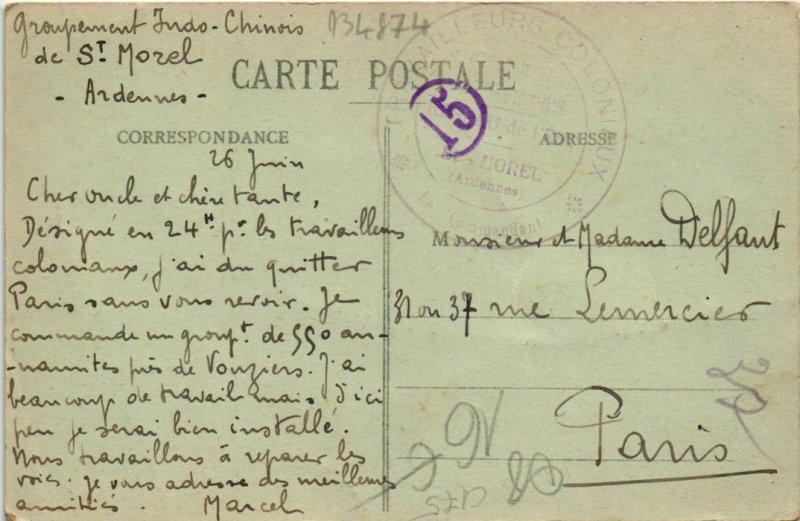 Groupement Indo-Chinois
de St Morel
- Ardennes -
B4874
CARTE POSTALE
CORRESPONDANCE
26 Juin
Cher oncle et chère tante,
Désigné en 24H pr les travailleurs
coloniaux, j'ai du quitter
Paris sans vous revoir. Je
commande un groupt de 550 an-
-namites près de Vouziers. J'ai
beaucoup de travail mais d'ici
peu je serai bien installé.
Nous travaillons à réparer les
voies. Je vous adresse des meilleures
amitiés. Marcel
TRAVAILLEURS COLONIAUX
MOREL
(Ardennes)
Le Commandant
15
ADRESSE
Monsieur et Madame Delfaut
31 ou 37 rue Lemercier
Paris